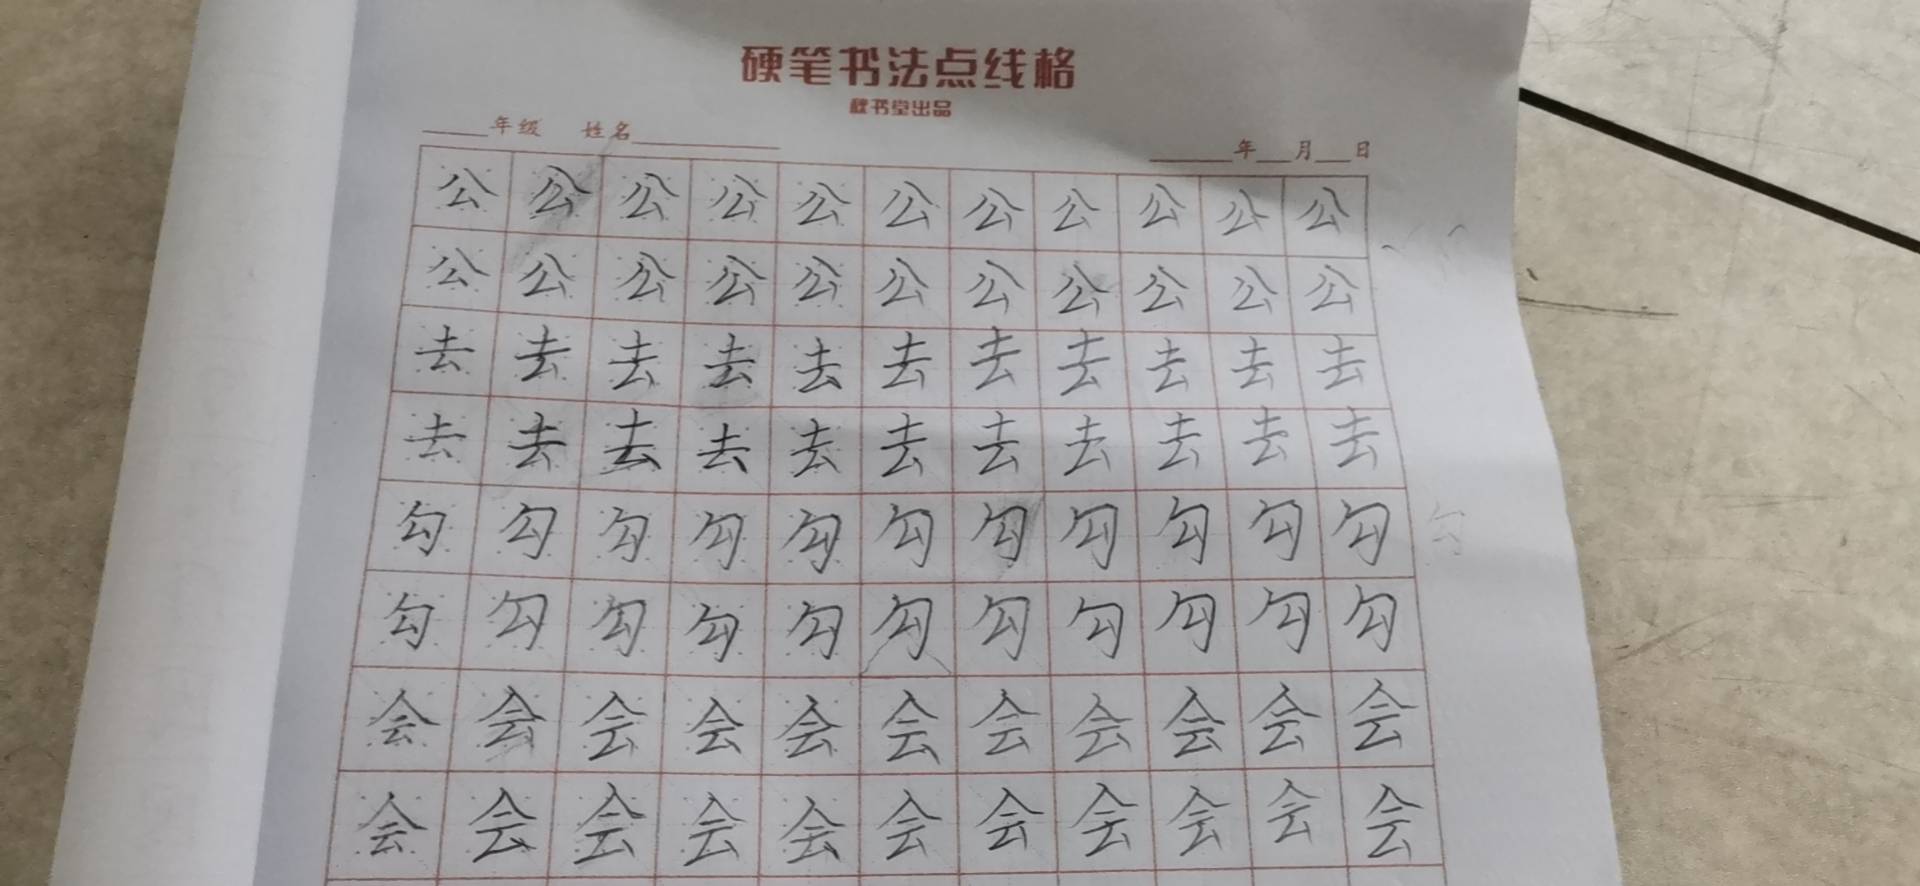 硬笔书法点线格
秋书堂出品
年级 姓名 年 月 日
公公公公公公公公公公公
公公公公公公公公公公公
去去去去去去去去去去去
去去去去去去去去去去去
勾勾勾勾勾勾勾勾勾勾勾 勾
勾勾勾勾勾勾勾勾勾勾勾
会会会会会会会会会会会
会会会会会会会会会会会